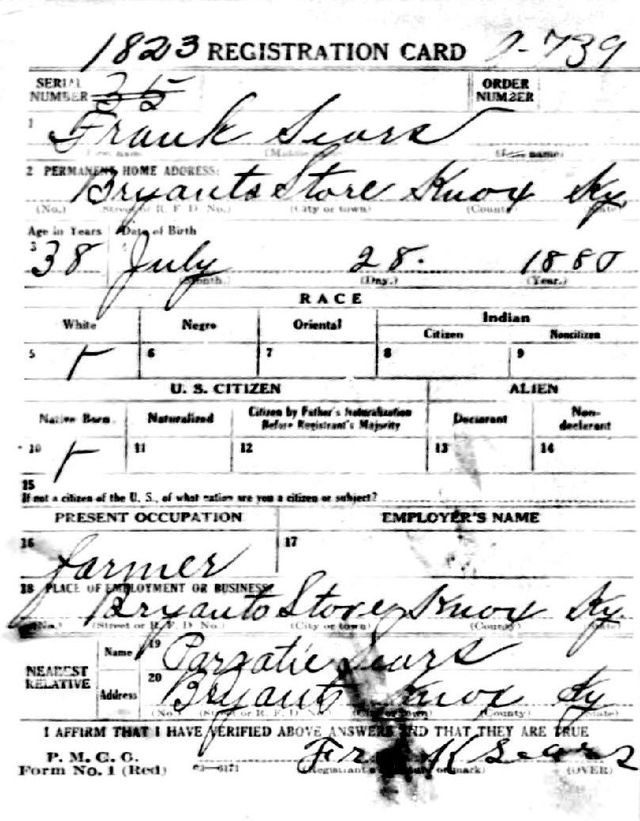 1823 REGISTRATION CARD 0-739
SERIAL NUMBER 35 ORDER NUMBER
1 Frank Sears
(First name) (Middle name) (Last name)
2 PERMANENT HOME ADDRESS:
Bryants Store Knox Ky
(No.) (Street or R. F. D. No.) (City or town) (County) (State)
Age in Years Date of Birth
3 38 4 July 28. 1880
(Month.) (Day.) (Year.)
RACE
White Negro Oriental Indian
Citizen Noncitizen
5 6 7 8 9
U. S. CITIZEN ALIEN
Native Born Naturalized Citizen by Father's Naturalization Before Registrant's Majority Declarant Non-declarant
10 11 12 13 14
15
If not a citizen of the U. S., of what nation are you a citizen or subject?
PRESENT OCCUPATION EMPLOYER'S NAME
16 farmer 17
18 PLACE OF EMPLOYMENT OR BUSINESS:
Bryants Store Knox Ky
(No.) (Street or R. F. D. No.) (City or town) (County) (State)
NEAREST RELATIVE Name 19 Parzatie Sears
Address 20 Bryant Knox Ky
(No.) (Street or R. F. D. No.) (City or town) (County) (State)
I AFFIRM THAT I HAVE VERIFIED ABOVE ANSWERS AND THAT THEY ARE TRUE
P. M. G. O.
Form No. 1 (Red) 03-6171 Frank Sears
(Registrant's signature or mark) (OVER)